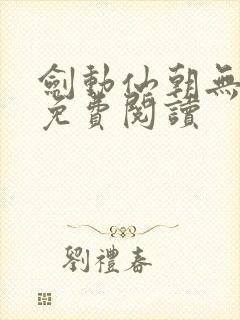 劍動仙朝無
免費閱讀
劉禮春